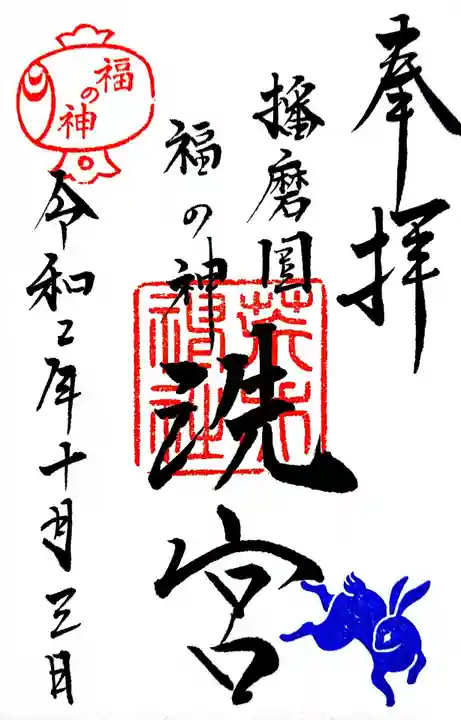 奉拝
播磨國
福の神
洗宮
荒井
神社
福の神
令和二年十月三日